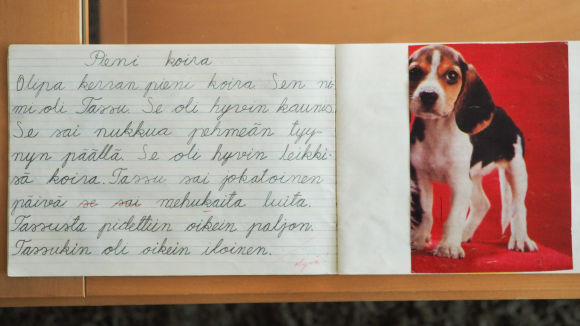 Pieni koira
Olipa kerran pieni koira. Sen ni-
mi oli Tassu. Se oli hyvin kaunis.
Se sai nukkua pehmeän tyy-
nyn päällä. Se oli hyvin leikki-
sä koira. Tassu sai jokatoinen
päivä se sai mehukaita luita.
Tassusta pidettiin oikein paljon.
Tassukin oli oikein iloinen.